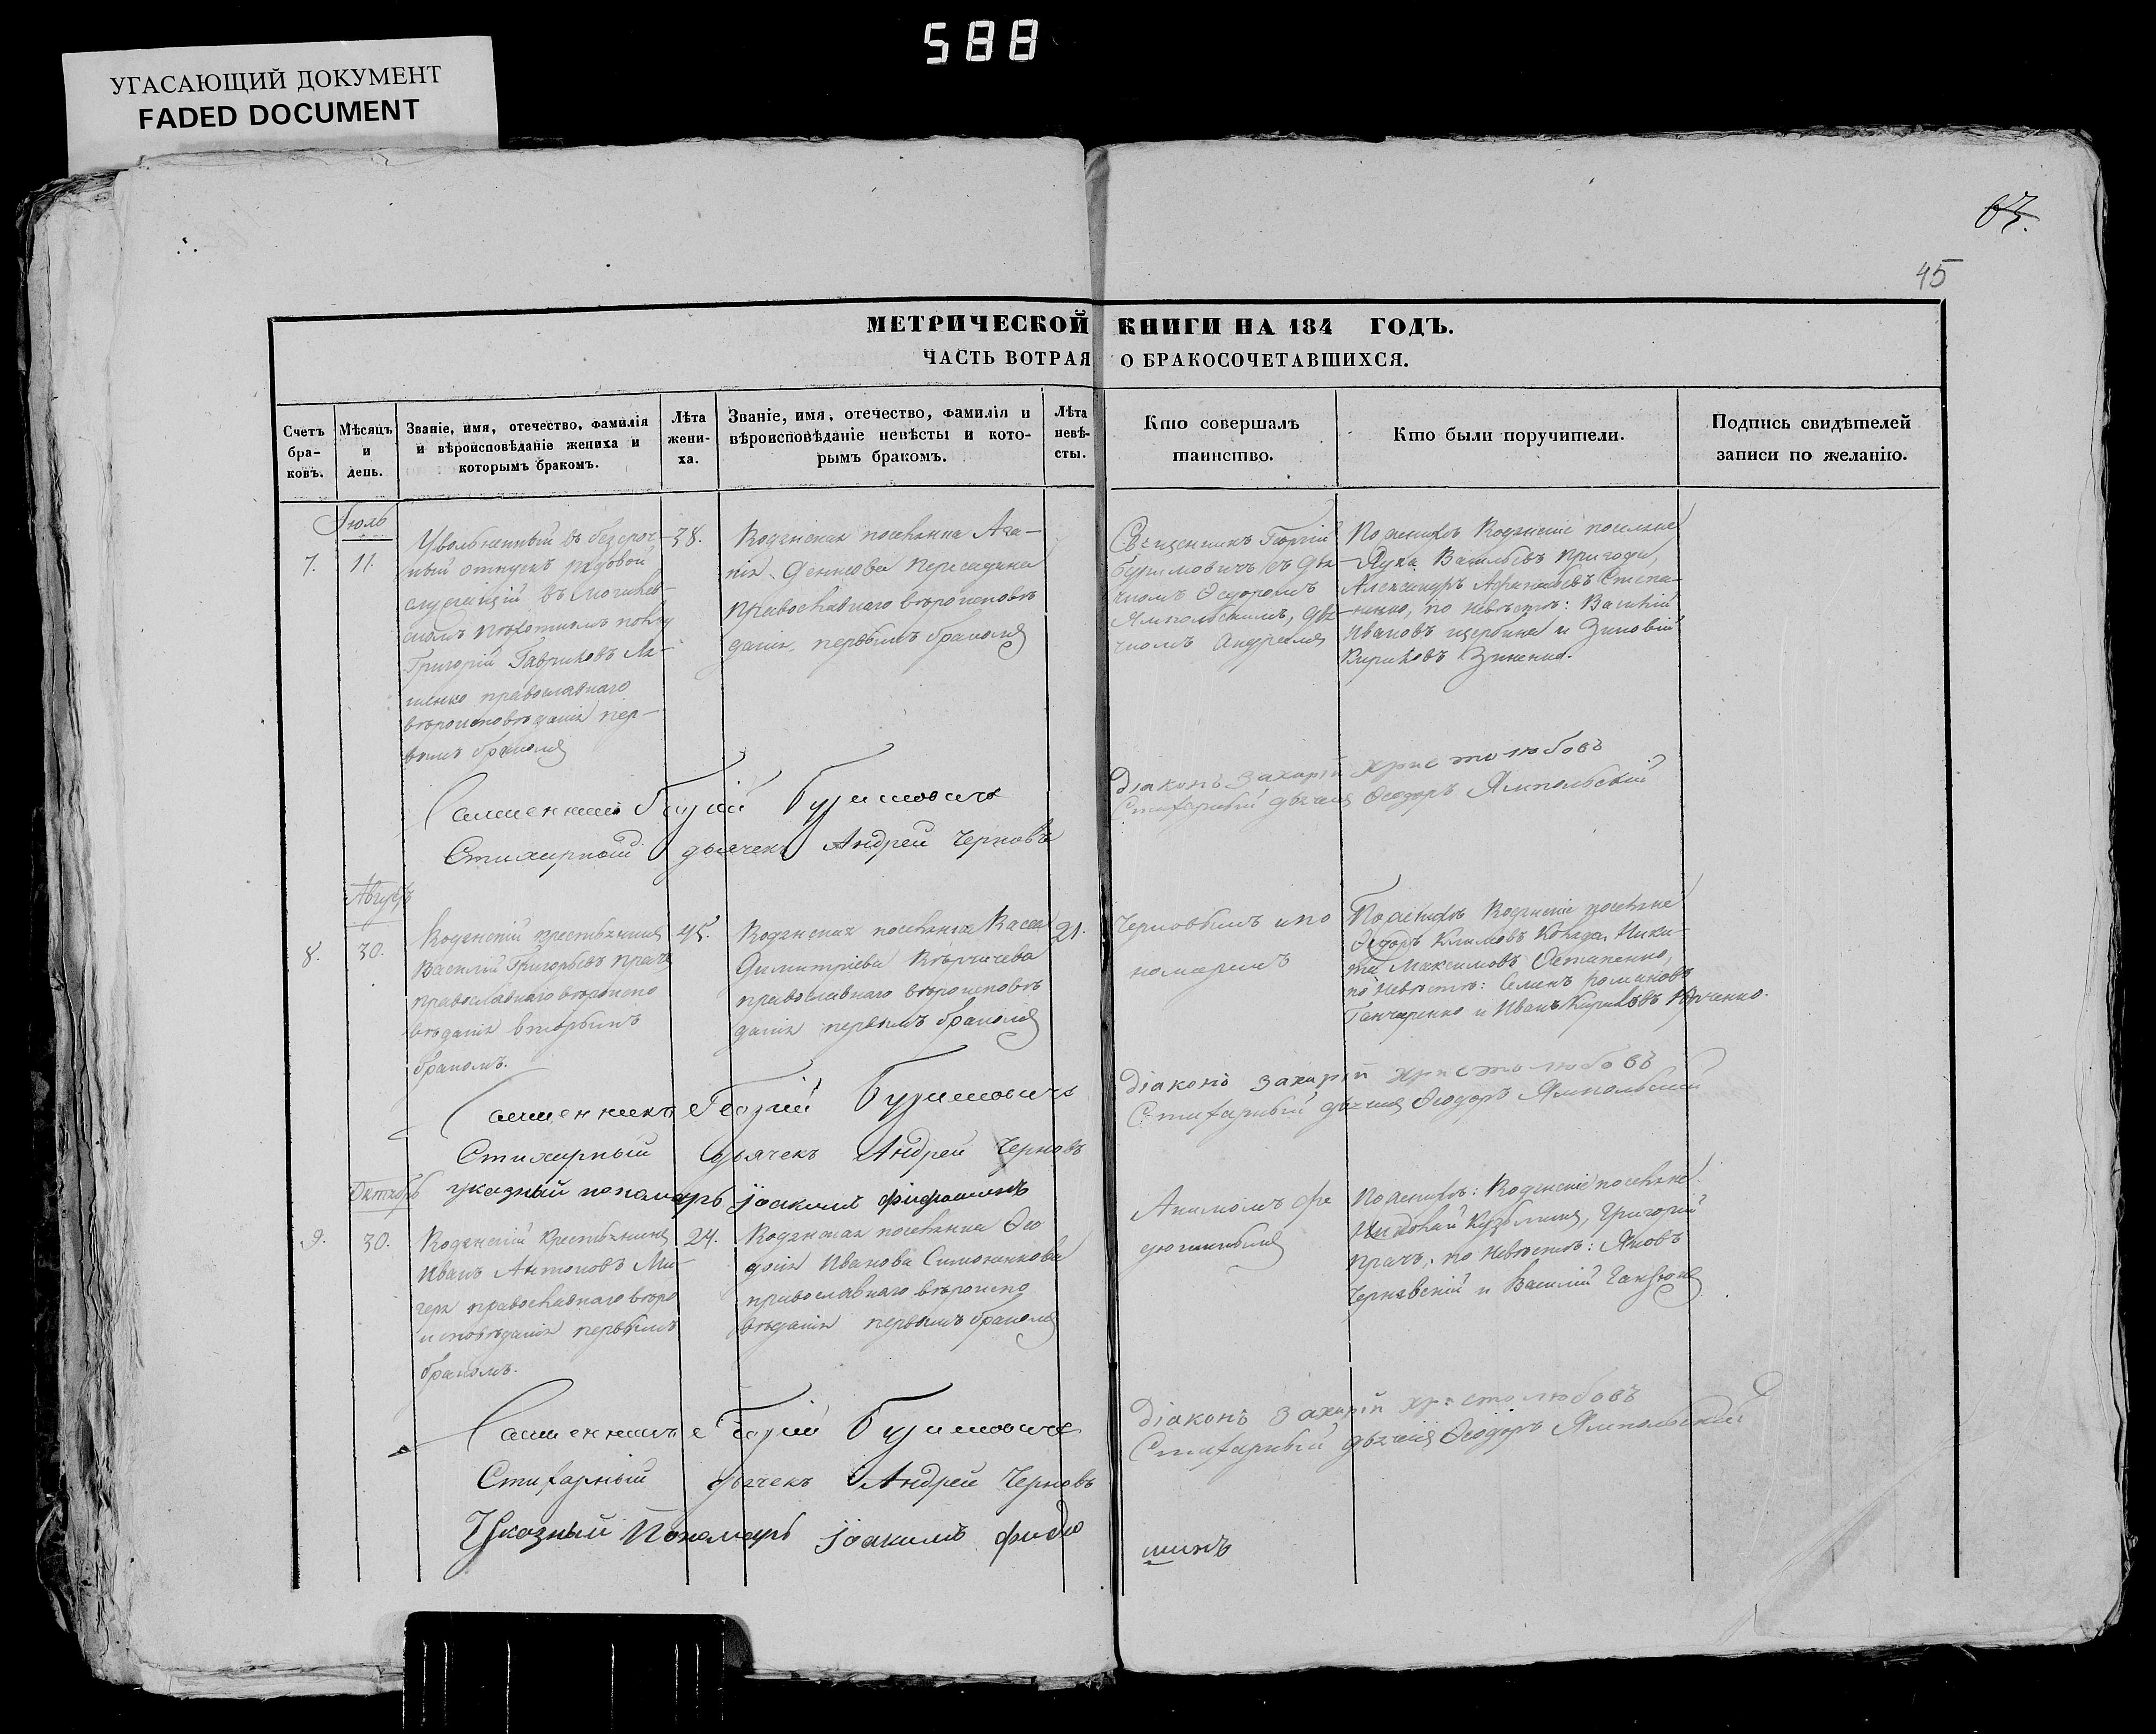 588
УГАСАЮЩИЙ ДОКУМЕНТ
FADED DOCUMENT
67.
45
МЕТРИЧЕСКОЙ КНИГИ НА 184 ГОДЪ.
ЧАСТЬ ВОТРАЯ О БРАКОСОЧЕТАВШИХСЯ.
Счетъ
бра-
ковъ.
Мѣсяцъ
и
день.
Званіе, имя, отечество, фамилія
и вѣроисповѣданіе жениха и
которымъ бракомъ.
Лѣта
жени-
ха.
Званіе, имя, отечество, фамилія и
вѣроисповѣданіе невѣсты и кото-
рымъ бракомъ.
Лѣта
невѣ-
сты.
Кто совершалъ
таинство.
Кто были поручители.
Подпись свидѣтелей
записи по желанію.
Іюль
7.
11.
Увольненный въ безсроч-
ный отпускъ рядовой
служащій въ
пѣхотномъ полку
Григорій Гавриловъ Ля-
шенко православнаго
вѣроисповѣданія пер-
вымъ бракомъ
38.
поселянка Ага-
Денисова
Православнаго вѣроисповѣ
данія, первымъ бракомъ
Священникъ Георгій
Буримовичъ съ дья-
чкомъ Феодоромъ
Ямпольскимъ, дья-
чкомъ Андреемъ
По женихѣ поселяне
Лука Васильевъ Пригода,
Александръ Афанасьевъ Степа-
ненко, по невѣстѣ: Василій
Ивановъ Щербина и Зиновій
Кириловъ Зиненко.
Священникъ Георгій Буримовичъ
Стихарный дьячекъ Андрей Черновъ
Діаконъ Захарій Христолюбовъ
Стихарный дьячекъ Феодоръ Ямпольскій
Августъ
8.
30.
крестьянинъ
Василій Григорьевъ Прачъ
православнаго вѣроиспо
вѣданія вторымъ
бракомъ.
45.
поселянка
Димитріева
православнаго вѣроисповѣ
данія первымъ бракомъ
21.
Черновымъ и по
номаремъ
По женихѣ поселяне
Феодоръ Климовъ Ники-
та Максимовъ Остапенко,
по невѣстѣ: Романовъ
Ганчаренко и Иванъ Кириловъ
Священникъ Георгій Буримовичъ
Стихарный дьячекъ Андрей Черновъ
указный пономарь Іоакимъ
Діаконъ Захарій Христолюбовъ
Стихарный дьячекъ Феодоръ Ямпольскій
Октябрь
9.
30.
крестьянинъ
Иванъ Антоновъ Ми-
православнаго вѣро
исповѣданія первымъ
бракомъ.
24.
поселянка Фео
досія Иванова Симоненкова
православнаго вѣроиспо
вѣданія первымъ бракомъ
По женихѣ: поселяне
Николай Кузьминъ, Григорій
Прачъ, по невѣстѣ: Яковъ
Чернявскій и Василій
Священникъ Георгій Буримовичъ
Стихарный дьячекъ Андрей Черновъ
Указный Пономарь Іоакимъ Фидю
шинъ
Діаконъ Захарій Христолюбовъ
Стихарный дьячекъ Феодоръ Ямпольскій